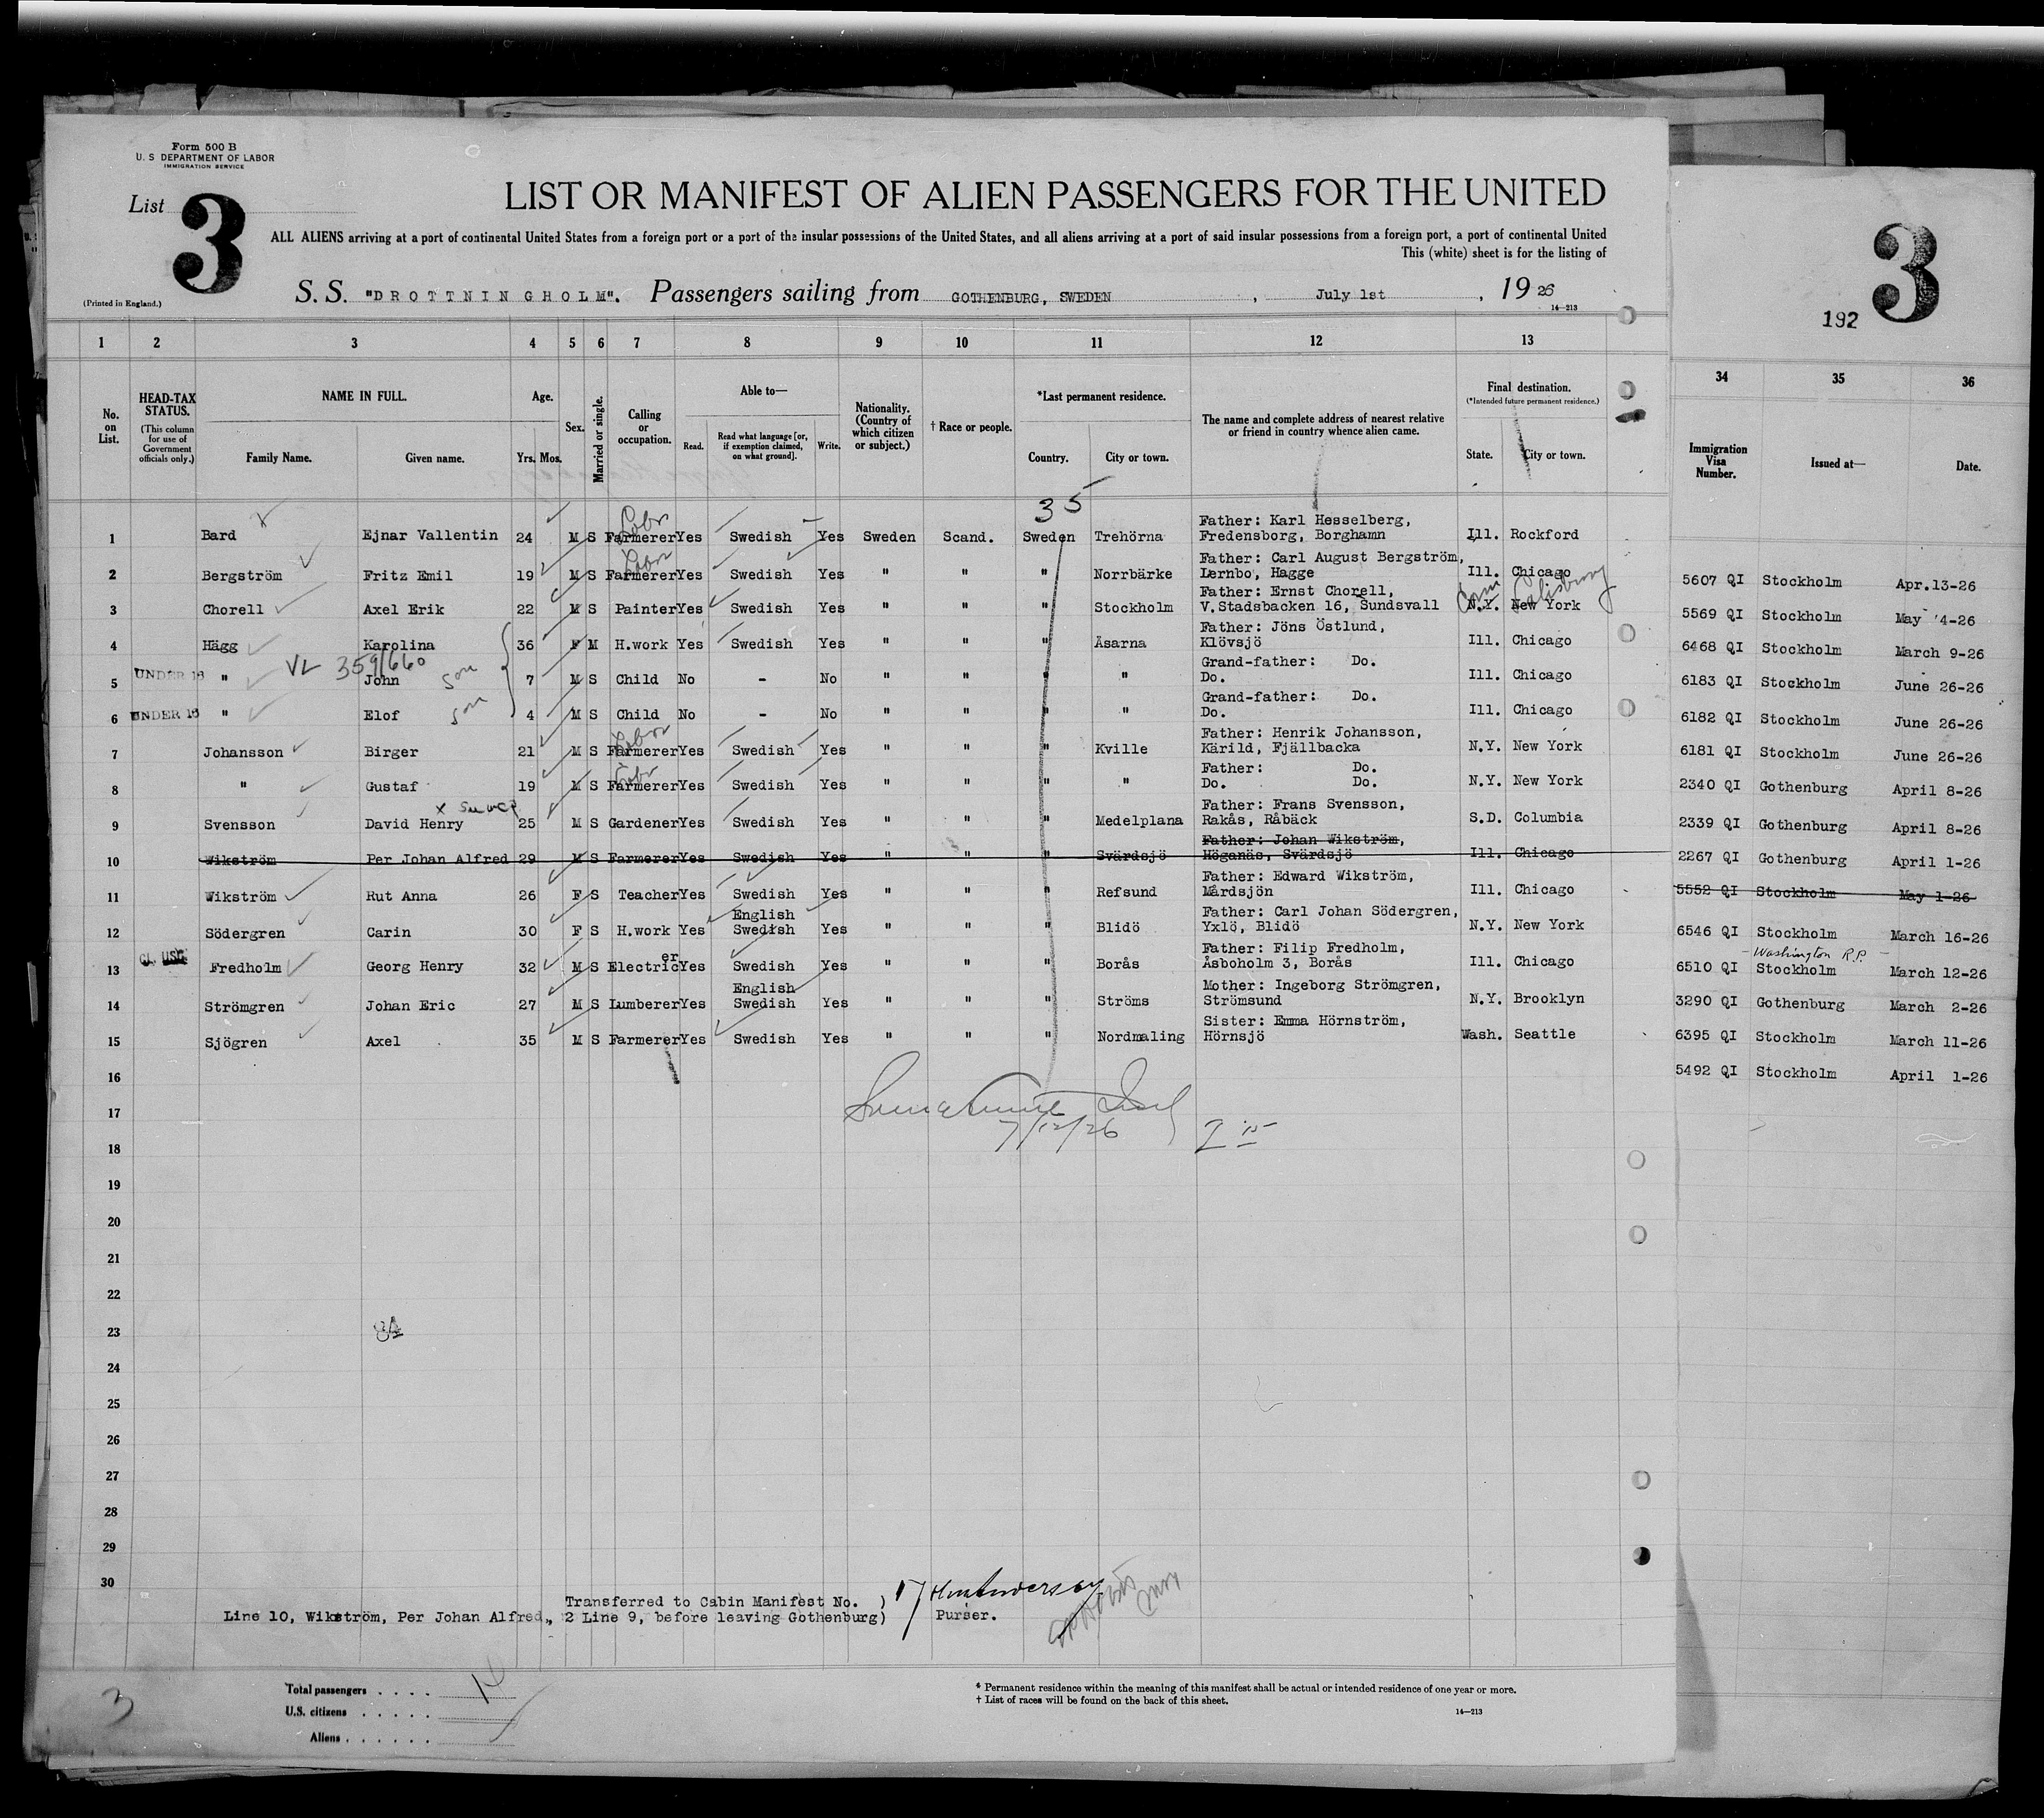 Form 500 B
U. S DEPARTMENT OF LABOR
IMMIGRATION SERVICE
List 3
LIST OR MANIFEST OF ALIEN PASSENGERS FOR THE UNITED
ALL ALIENS arriving at a port of continental United States from a foreign port or a port of the insular possessions of the United States, and all aliens arriving at a port of said insular possessions from a foreign port, a port of continental United
This (white) sheet is for the listing of
(Printed in England.)
S. S. "DROTTNINGHOLM". Passengers sailing from GOTHENBURG, SWEDEN, July 1st, 19 26
14—213
3
192
1 2 3 4 5 6 7 8 9 10 11 12 13 34 35 36
No. on List.
HEAD-TAX STATUS.
(This column for use of Government officials only.)
NAME IN FULL.
Family Name. Given name.
Age.
Yrs. Mos.
Sex.
Married or single.
Calling or occupation.
Able to—
Read. Read what language [or, if exemption claimed, on what ground]. Write.
Nationality. (Country of which citizen or subject.)
† Race or people.
*Last permanent residence.
Country. City or town.
The name and complete address of nearest relative or friend in country whence alien came.
Final destination.
(*Intended future permanent residence.)
State. City or town.
Immigration Visa Number.
Issued at—
Date.
35
Labr
1 Bard Ejnar Vallentin 24 M S Farmerer Yes Swedish Yes Sweden Scand. Sweden Trehörna Father: Karl Hesselberg, Fredensborg, Borghamn Ill. Rockford 5607 QI Stockholm Apr.13-26
Labr
2 Bergström Fritz Emil 19 M S Farmerer Yes Swedish Yes " " " Norrbärke Father: Carl August Bergström, Lernbo, Hagge Ill. Chicago 5569 QI Stockholm May 4-26
Conn Salisbury
3 Chorell Axel Erik 22 M S Painter Yes Swedish Yes " " " Stockholm Father: Ernst Chorell, V.Stadsbacken 16, Sundsvall N.Y. New York 6468 QI Stockholm March 9-26
4 Hägg Karolina 36 F M H.work Yes Swedish Yes " " " Åsarna Father: Jöns Östlund, Klövsjö Ill. Chicago 6183 QI Stockholm June 26-26
VL 359/660
5 UNDER 16 " John son 7 M S Child No - No " " " " Grand-father: Do. Do. Ill. Chicago 6182 QI Stockholm June 26-26
6 UNDER 16 " Elof son 4 M S Child No - No " " " " Grand-father: Do. Do. Ill. Chicago 6181 QI Stockholm June 26-26
Labr
7 Johansson Birger 21 M S Farmerer Yes Swedish Yes " " " Kville Father: Henrik Johansson, Kärild, Fjällbacka N.Y. New York 2340 QI Gothenburg April 8-26
Labr
8 " Gustaf 19 M S Farmerer Yes Swedish Yes " " " " Father: Do. Do. Do. N.Y. New York 2339 QI Gothenburg April 8-26
9 Svensson David Henry 25 M S Gardener Yes Swedish Yes " " " Medelplana Father: Frans Svensson, Rakås, Råbäck S.D. Columbia 2267 QI Gothenburg April 1-26
10 Wikström Per Johan Alfred 29 M S Farmerer Yes Swedish Yes " " " Svärdsjö Father: Johan Wikström, Höganäs, Svärdsjö Ill. Chicago 5552 QI Stockholm May 1-26
11 Wikström Rut Anna 26 F S Teacher Yes Swedish Yes " " " Refsund Father: Edward Wikström, Mårdsjön Ill. Chicago 6546 QI Stockholm March 16-26
12 Södergren Carin 30 F S H.work Yes English Swedish Yes " " " Blidö Father: Carl Johan Södergren, Yxlö, Blidö N.Y. New York 6510 QI Washington R.P. Stockholm March 12-26
13 Fredholm Georg Henry 32 M S Electricer Yes Swedish Yes " " " Borås Father: Filip Fredholm, Åsboholm 3, Borås Ill. Chicago 3290 QI Gothenburg March 2-26
14 Strömgren Johan Eric 27 M S Lumberer Yes English Swedish Yes " " " Ströms Mother: Ingeborg Strömgren, Strömsund N.Y. Brooklyn 6395 QI Stockholm March 11-26
15 Sjögren Axel 35 M S Farmerer Yes Swedish Yes " " " Nordmaling Sister: Emma Hörnström, Hörnsjö Wash. Seattle 5492 QI Stockholm April 1-26
16
17
7/12/26
18
19
20
21
22
23
24
25
26
27
28
29
30
Transferred to Cabin Manifest No. )
Line 10, Wikström, Per Johan Alfred., 2 Line 9, before leaving Gothenburg)
Purser.
3
Total passengers . . . . 14
U.S. citizens . . . . .
Aliens . . . . . .
* Permanent residence within the meaning of this manifest shall be actual or intended residence of one year or more.
† List of races will be found on the back of this sheet.
14—213